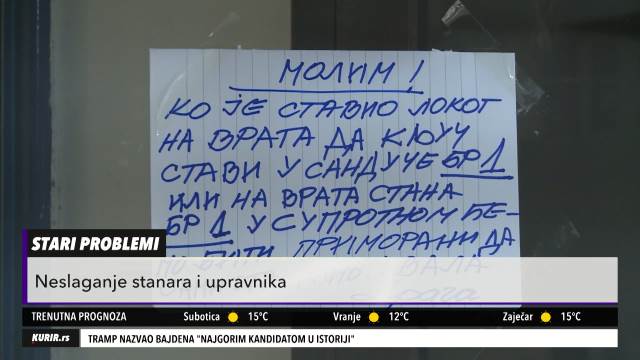 МОЛИМ!
КО ЈЕ СТАВИО ЛОКОТ
НА ВРАТА ДА КЉУЧ
СТАВИ У САНДУЧЕ БР 1
ИЛИ НА ВРАТА СТАНА
БР 1 У СУПРОТНОМ БЕ-
ПРИМОРАНИ ДА
STARI PROBLEMI
Neslaganje stanara i upravnika
TRENUTNA PROGNOZA Subotica 15°C Vranje 12°C Zaječar 15°C
KURIR.rs TRAMP NAZVAO BAJDENA "NAJGORIM KANDIDATOM U ISTORIJI"